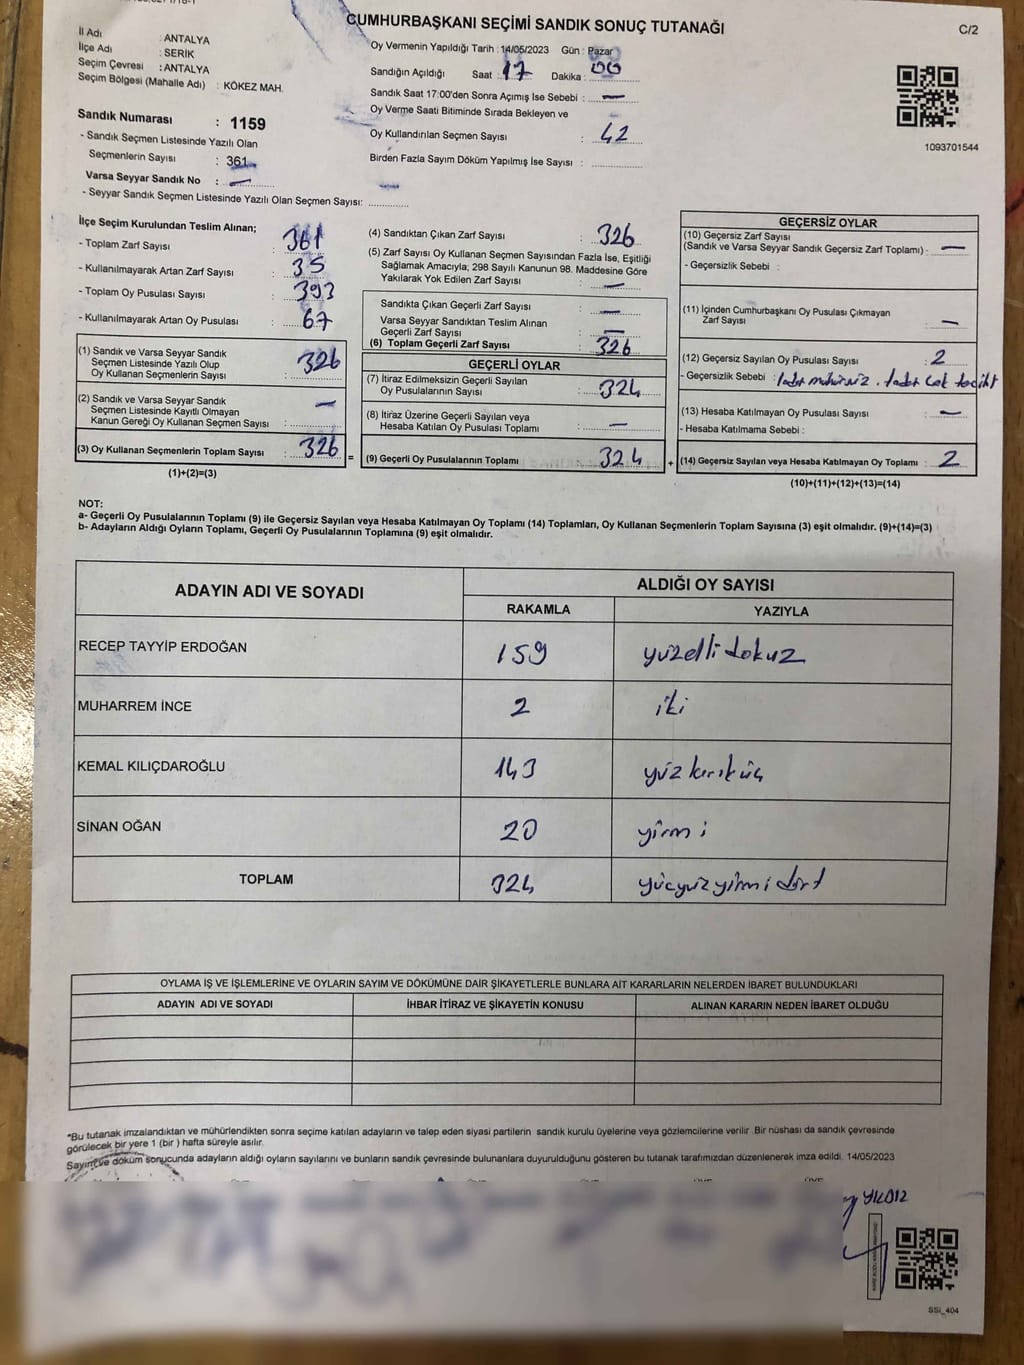 CUMHURBAŞKANI SEÇİMİ SANDIK SONUÇ TUTANAĞI
C/2
İl Adı : ANTALYA
İlçe Adı : SERİK
Seçim Çevresi : ANTALYA
Seçim Bölgesi (Mahalle Adı) : KÖKEZ MAH.
Sandık Numarası : 1159
- Sandık Seçmen Listesinde Yazılı Olan
Seçmenlerin Sayısı : 361
Varsa Seyyar Sandık No : —
- Seyyar Sandık Seçmen Listesinde Yazılı Olan Seçmen Sayısı:
Oy Vermenin Yapıldığı Tarih : 14/05/2023 Gün : Pazar
Sandığın Açıldığı Saat : 17 Dakika : 00
Sandık Saat 17:00'den Sonra Açımış İse Sebebi : —
Oy Verme Saati Bitiminde Sırada Bekleyen ve
Oy Kullandırılan Seçmen Sayısı : 42
Birden Fazla Sayım Döküm Yapılmış İse Sayısı :
1093701544
İlçe Seçim Kurulundan Teslim Alınan;
- Toplam Zarf Sayısı : 361
- Kullanılmayarak Artan Zarf Sayısı : 35
- Toplam Oy Pusulası Sayısı : 393
- Kullanılmayarak Artan Oy Pusulası : 67
(1) Sandık ve Varsa Seyyar Sandık
Seçmen Listesinde Yazılı Olup
Oy Kullanan Seçmenlerin Sayısı : 326
(2) Sandık ve Varsa Seyyar Sandık
Seçmen Listesinde Kayıtlı Olmayan
Kanun Gereği Oy Kullanan Seçmen Sayısı : —
(3) Oy Kullanan Seçmenlerin Toplam Sayısı : 326
(1)+(2)=(3)
(4) Sandıktan Çıkan Zarf Sayısı : 326
(5) Zarf Sayısı Oy Kullanan Seçmen Sayısından Fazla İse, Eşitliği
Sağlamak Amacıyla; 298 Sayılı Kanunun 98. Maddesine Göre
Yakılarak Yok Edilen Zarf Sayısı : —
Sandıkta Çıkan Geçerli Zarf Sayısı : —
Varsa Seyyar Sandıktan Teslim Alınan
Geçerli Zarf Sayısı : —
(6) Toplam Geçerli Zarf Sayısı : 326
GEÇERLİ OYLAR
(7) İtiraz Edilmeksizin Geçerli Sayılan
Oy Pusulalarının Sayısı : 324
(8) İtiraz Üzerine Geçerli Sayılan veya
Hesaba Katılan Oy Pusulası Toplamı : —
= (9) Geçerli Oy Pusulalarının Toplamı : 324
GEÇERSİZ OYLAR
(10) Geçersiz Zarf Sayısı
(Sandık ve Varsa Seyyar Sandık Geçersiz Zarf Toplamı) : —
- Geçersizlik Sebebi :
(11) İçinden Cumhurbaşkanı Oy Pusulası Çıkmayan
Zarf Sayısı : —
(12) Geçersiz Sayılan Oy Pusulası Sayısı : 2
- Geçersizlik Sebebi : 1 adet mühürsüz. 1 adet çok terciht
(13) Hesaba Katılmayan Oy Pusulası Sayısı : —
- Hesaba Katılmama Sebebi :
+ (14) Geçersiz Sayılan veya Hesaba Katılmayan Oy Toplamı : 2
(10)+(11)+(12)+(13)=(14)
NOT:
a- Geçerli Oy Pusulalarının Toplamı (9) ile Geçersiz Sayılan veya Hesaba Katılmayan Oy Toplamı (14) Toplamları, Oy Kullanan Seçmenlerin Toplam Sayısına (3) eşit olmalıdır. (9)+(14)=(3)
b- Adayların Aldığı Oyların Toplamı, Geçerli Oy Pusulalarının Toplamına (9) eşit olmalıdır.
ADAYIN ADI VE SOYADI ALDIĞI OY SAYISI
RAKAMLA YAZIYLA
RECEP TAYYİP ERDOĞAN 159 yüzellidokuz
MUHARREM İNCE 2 iki
KEMAL KILIÇDAROĞLU 143 yüz kırıküç
SİNAN OĞAN 20 yirmi
TOPLAM 324 yücyüzyirmi dört
OYLAMA İŞ VE İŞLEMLERİNE VE OYLARIN SAYIM VE DÖKÜMÜNE DAİR ŞİKAYETLERLE BUNLARA AİT KARARLARIN NELERDEN İBARET BULUNDUKLARI
ADAYIN ADI VE SOYADI İHBAR İTİRAZ VE ŞİKAYETİN KONUSU ALINAN KARARIN NEDEN İBARET OLDUĞU
*Bu tutanak imzalandıktan ve mühürlendikten sonra seçime katılan adayların ve talep eden siyasi partilerin sandık kurulu üyelerine veya gözlemcilerine verilir .Bir nüshası da sandık çevresinde
görülecek bir yere 1 (bir ) hafta süreyle asılır.
Sayım ve döküm sonucunda adayların aldığı oyların sayılarını ve bunların sandık çevresinde bulunanlara duyurulduğunu gösteren bu tutanak tarafımızdan düzenlenerek imza edildi. 14/05/2023
YILDIZ
SSİ_404